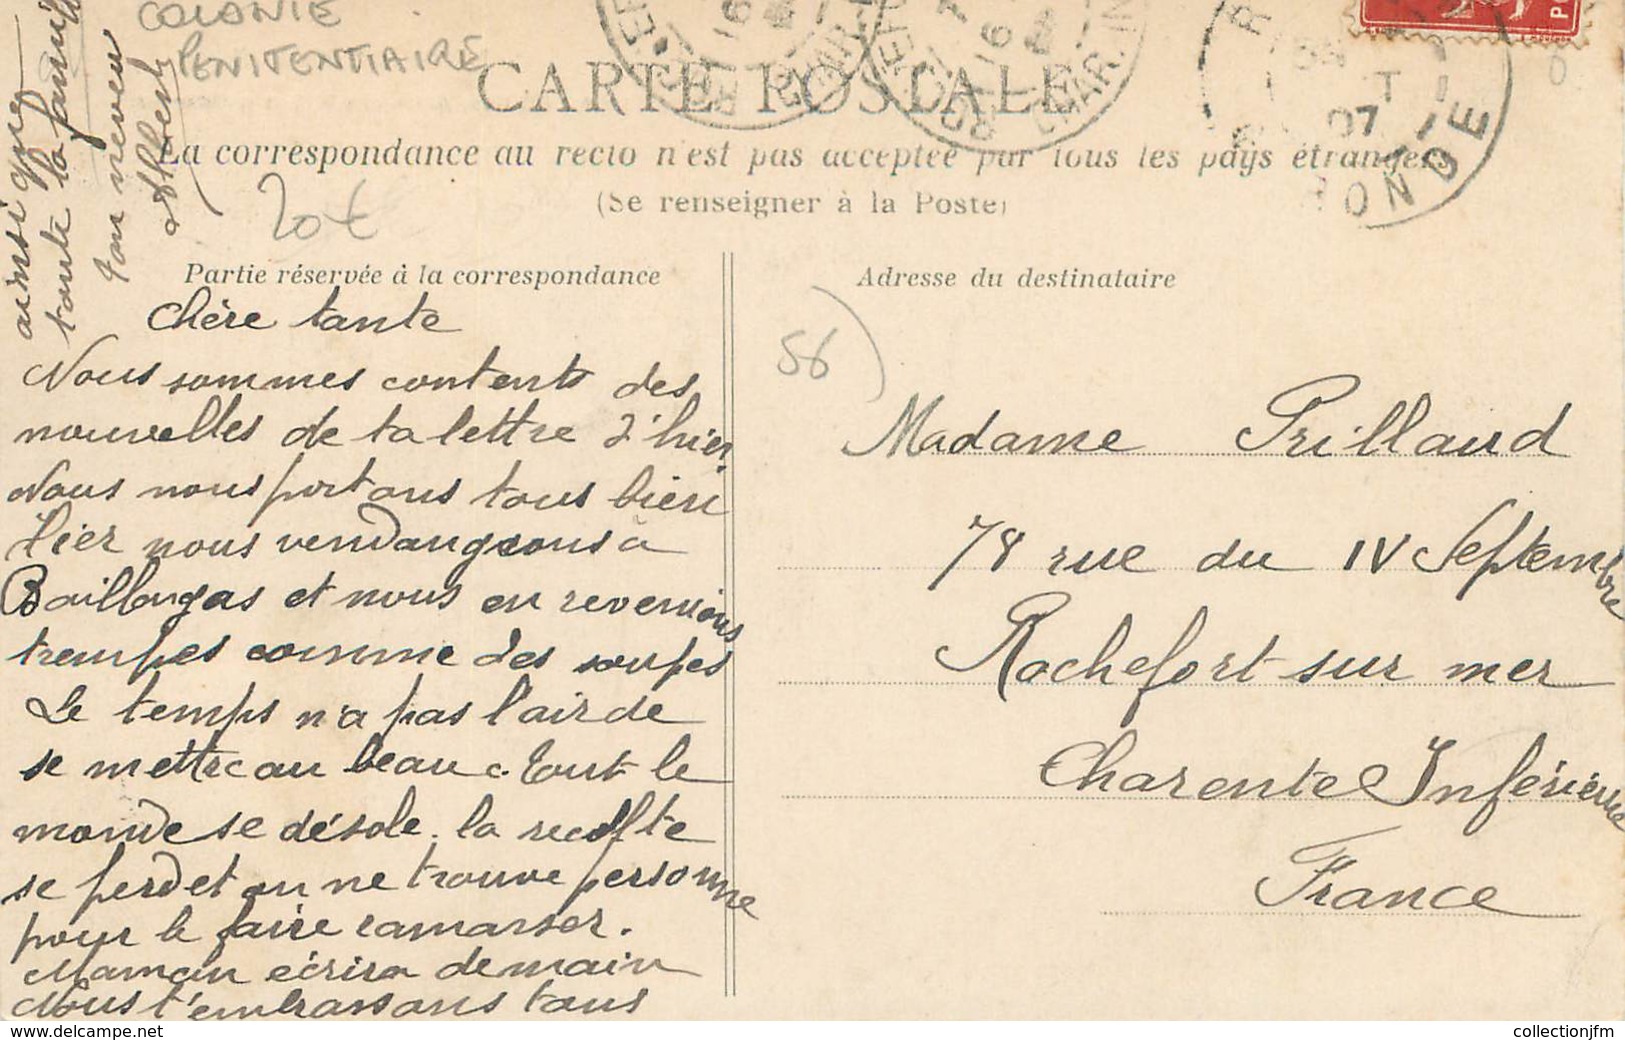 COLONIE
PENITENTIAIRE
CARTE POSTALE
La correspondance au recto n'est pas acceptée par tous les pays étrangers
(Se renseigner à la Poste)
20€
Partie réservée à la correspondance
Chère tante
Nous sommes contents des
nouvelles de ta lettre d'hier.
Nous nous portons tous bien
Hier nous vendangeons à
Baillargas et nous en revenions
trempés comme des soupes
Le temps n'a pas l'air de
se mettre au beau. Tout le
monde se désole. la recolte
se perd et on ne trouve personne
pour le faire ramasser.
Maman écrira demain
Nous t'embrassons tous
ainsi que
toute la famille
ton neveu
Albert
Adresse du destinataire
56
Madame Prillaud
78 rue du IV Septembre
Rochefort sur mer
Charente Inférieure
France
07
collection-delcampe.net
collectionjfm